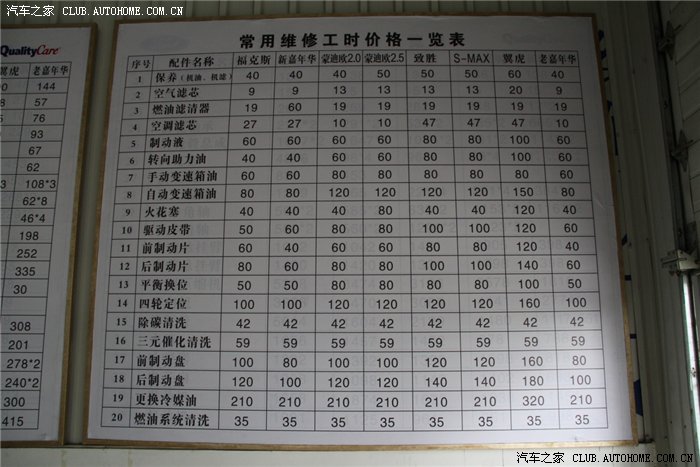 汽车之家 CLUB.AUTOHOME.COM.CN
QualityCare
翼虎 老嘉年华
144
58 57
65 76
90 93
67
62
108*3
62*8
46*4
198
252
335
30
308
201
278*2
240*2
300
415
常用维修工时价格一览表
序号 配件名称 福克斯 新嘉年华 蒙迪欧2.0 蒙迪欧2.5 致胜 S-MAX 翼虎 老嘉年华
1 保养（机油、机滤） 40 40 50 50 50 50 60 40
2 空气滤芯 9 9 13 13 13 13 20 9
3 燃油滤清器 19 60 19 19 19 19 19 19
4 空调滤芯 27 27 10 10 47 47 47 10
5 制动液 60 60 60 60 80 80 100 60
6 转向助力油 40 40 60 60 80 80 100 60
7 手动变速箱油 60 60 80 80 80 80 100 60
8 自动变速箱油 80 80 120 120 120 120 150 80
9 火花塞 40 40 40 80 40 40 120 40
10 驱动皮带 50 60 80 80 100 100 120 60
11 前制动片 60 40 60 60 80 80 120 40
12 后制动片 80 60 80 80 100 100 140 60
13 平衡换位 50 50 80 80 80 80 100 50
14 四轮定位 100 100 120 120 120 120 160 100
15 除碳清洗 42 42 42 42 42 42 42 42
16 三元催化清洗 59 59 59 59 59 59 59 59
17 前制动盘 100 80 100 100 120 120 160 80
18 后制动盘 120 100 120 120 140 140 180 100
19 更换冷媒油 210 210 210 210 210 210 320 210
20 燃油系统清洗 35 35 35 35 35 35 35 35
汽车之家 CLUB.AUTOHOME.COM.CN